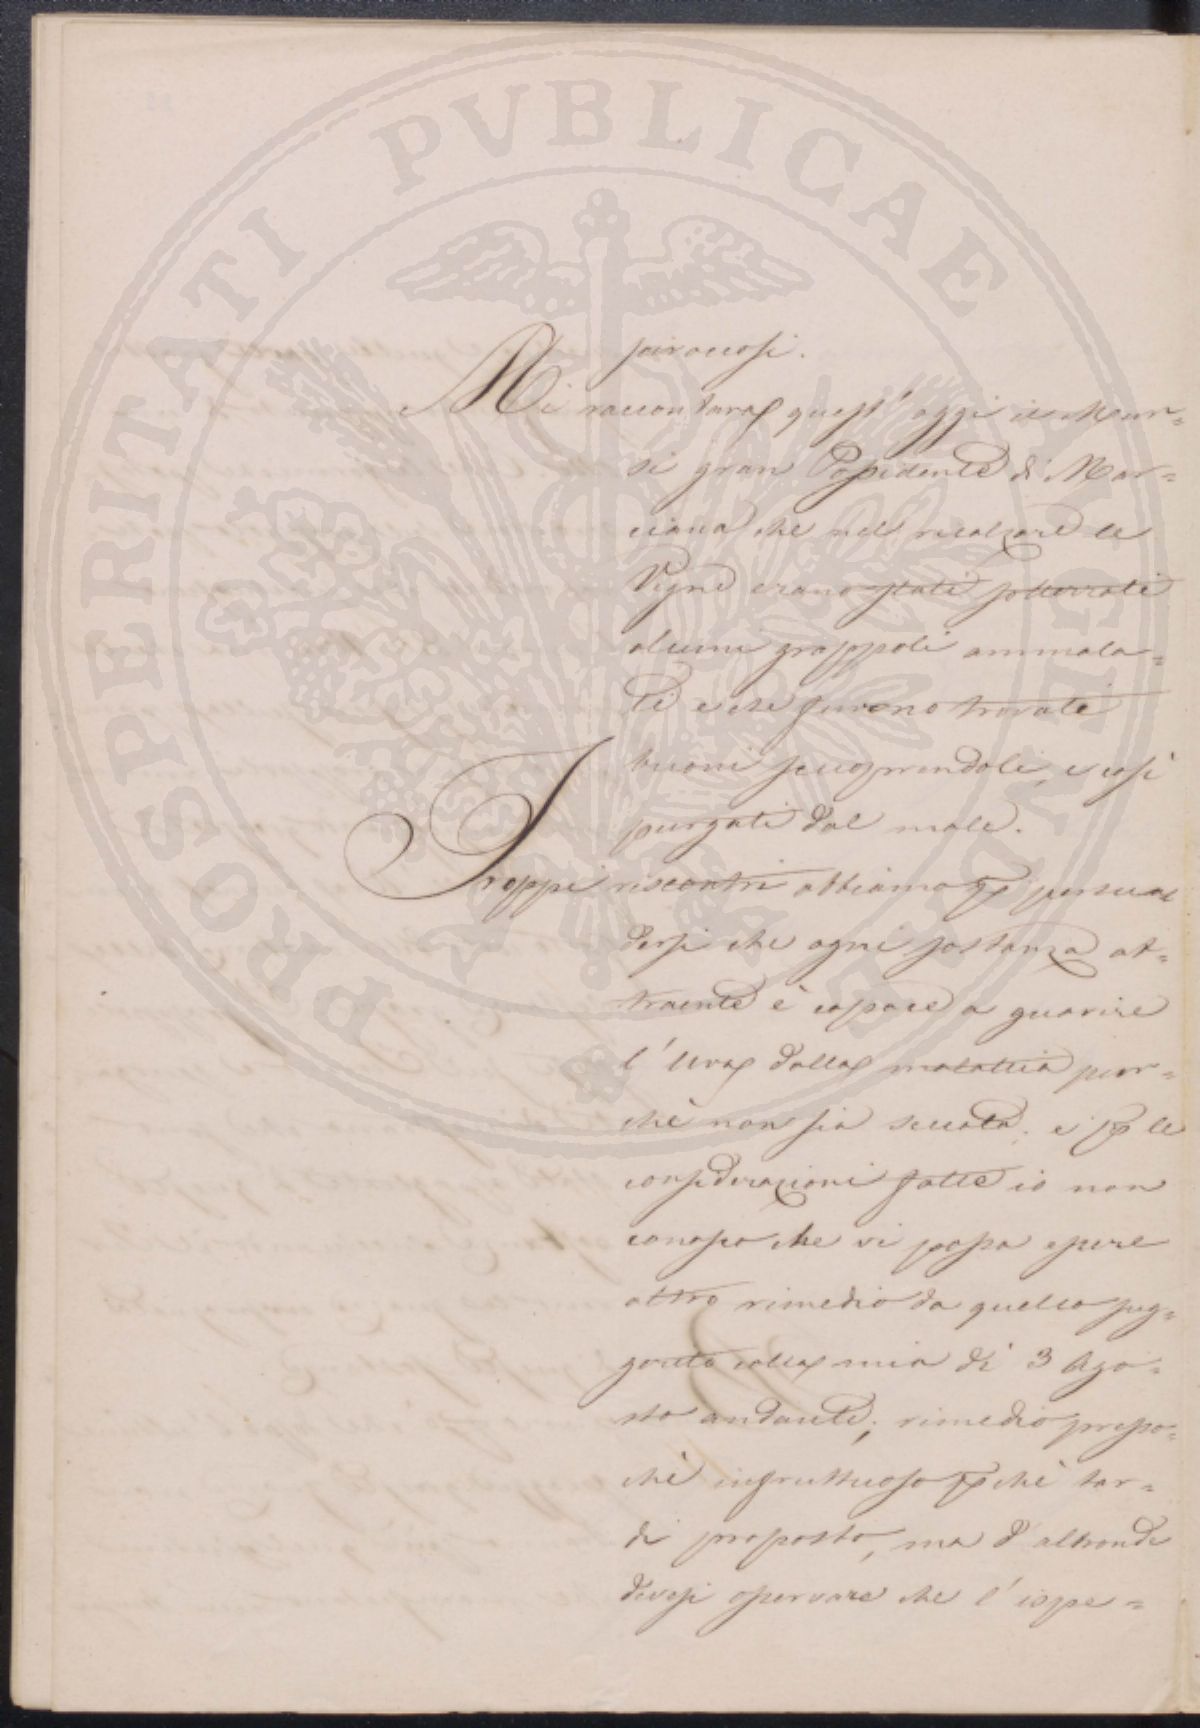 PROSPERITATI PVBLICAE AVGENDAE
Mi raccontava quest'oggi il Mur=
si gran Possidente di Mar=
ciana che nel ricalzare le
Vigne erano stati sotterrati
alcuni grappoli ammala=
ti e che furono trovati
buoni scuoprendoli, e così
purgati dal male.
Troppi riscontri abbiamo per persua
dersi che ogni sostanza at=
traente è capace a guarire
l'Uva dalla malattia pur=
chè non sia seccata; e per le
considerazioni fatte io non
conosco che vi possa essere
altro rimedio da quello sug=
gerito colla mia dì 3 Ago=
sto andante; rimedio presso=
chè infruttuoso perchè tar=
di proposto, ma d'altronde
devesi osservare che l'espe=